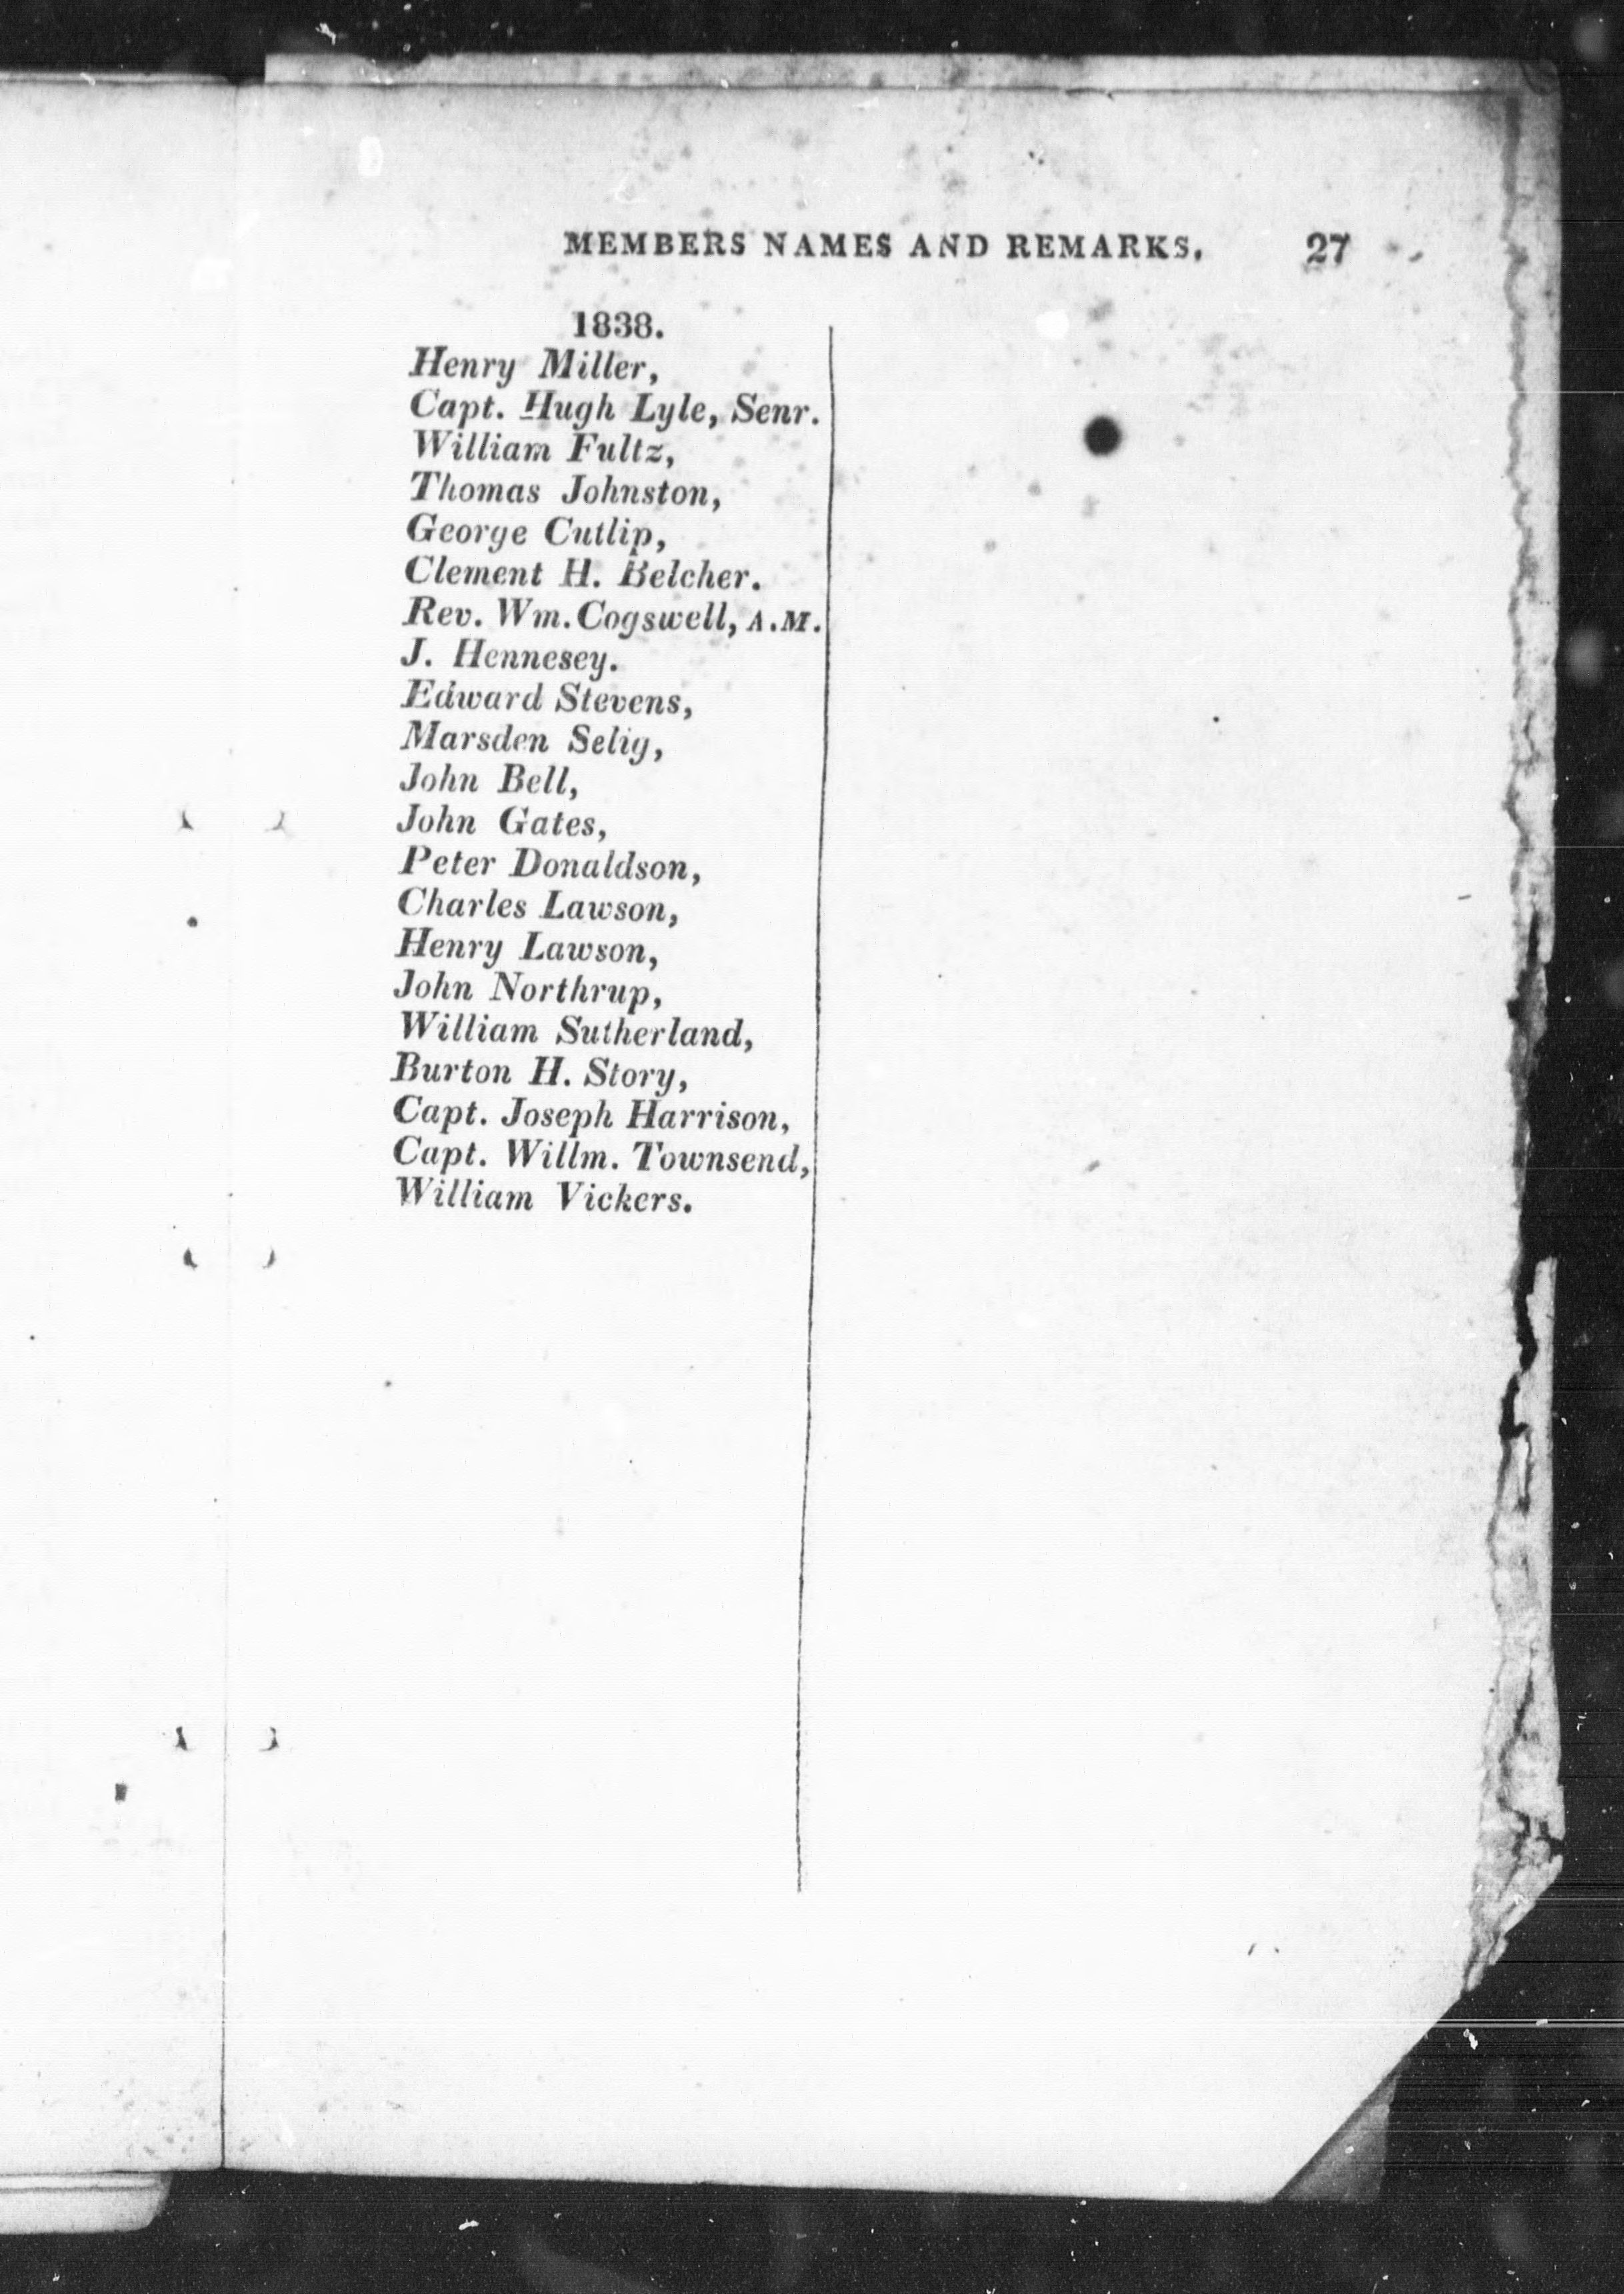 MEMBERS NAMES AND REMARKS. 27
1838.
Henry Miller,
Capt. Hugh Lyle, Senr.
William Fultz,
Thomas Johnston,
George Cutlip,
Clement H. Belcher.
Rev. Wm. Cogswell, A.M.
J. Hennesey.
Edward Stevens,
Marsden Selig,
John Bell,
John Gates,
Peter Donaldson,
Charles Lawson,
Henry Lawson,
John Northrup,
William Sutherland,
Burton H. Story,
Capt. Joseph Harrison,
Capt. Willm. Townsend,
William Vickers.